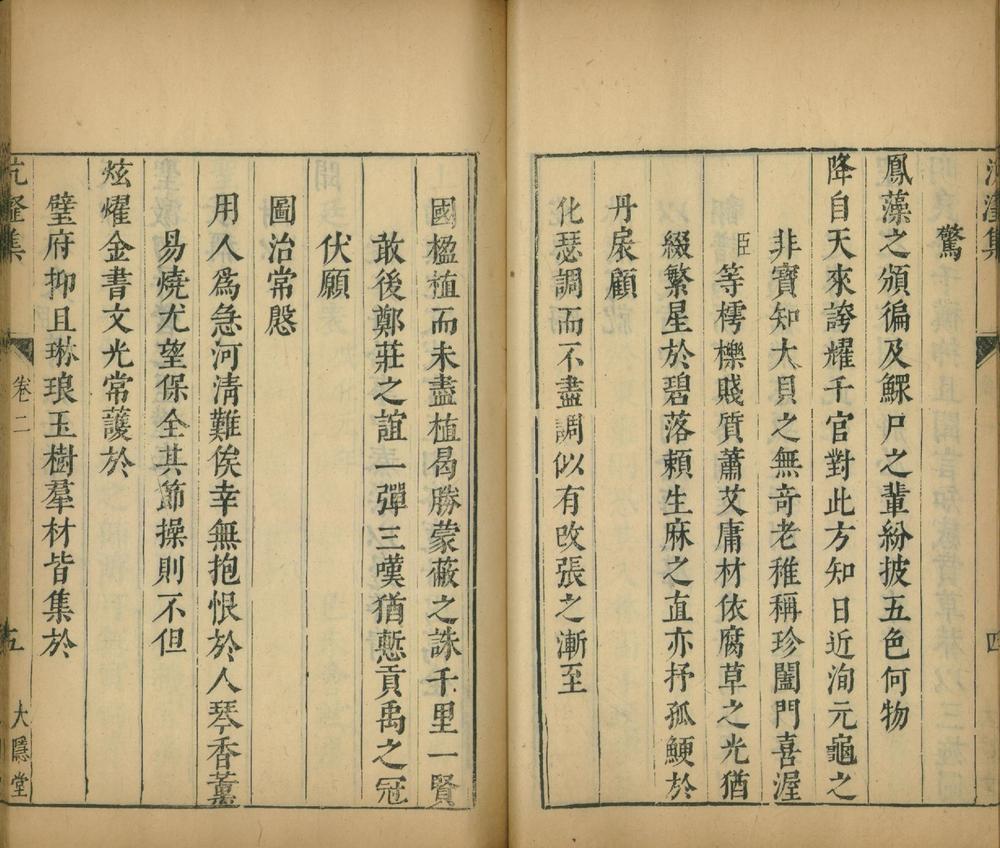 驚
鳳藻之頒徧及鰥尸之輩紛披五色何物
降自天來誇耀千官對此方知日近洵元龜之
非寶知大貝之無奇老稚稱珍闔門喜渥
臣等樗櫟賤質蕭艾庸材依腐草之光猶
綴繁星於碧落賴生麻之直亦抒孤鯁於
丹扆顧
化瑟調而不盡調似有改張之漸至
四
國楹植而未盡植曷勝蒙蔽之誅千里一賢
敢後鄭莊之誼一彈三嘆猶慙貢禹之冠
伏願
圖治常慇
用人爲急河清難俟幸無抱恨於人琴香薰
易燒尤望保全其節操則不但
炫燿金書文光常護於
璧府抑且琳琅玉樹羣材皆集於
集
卷二
五
大隱堂